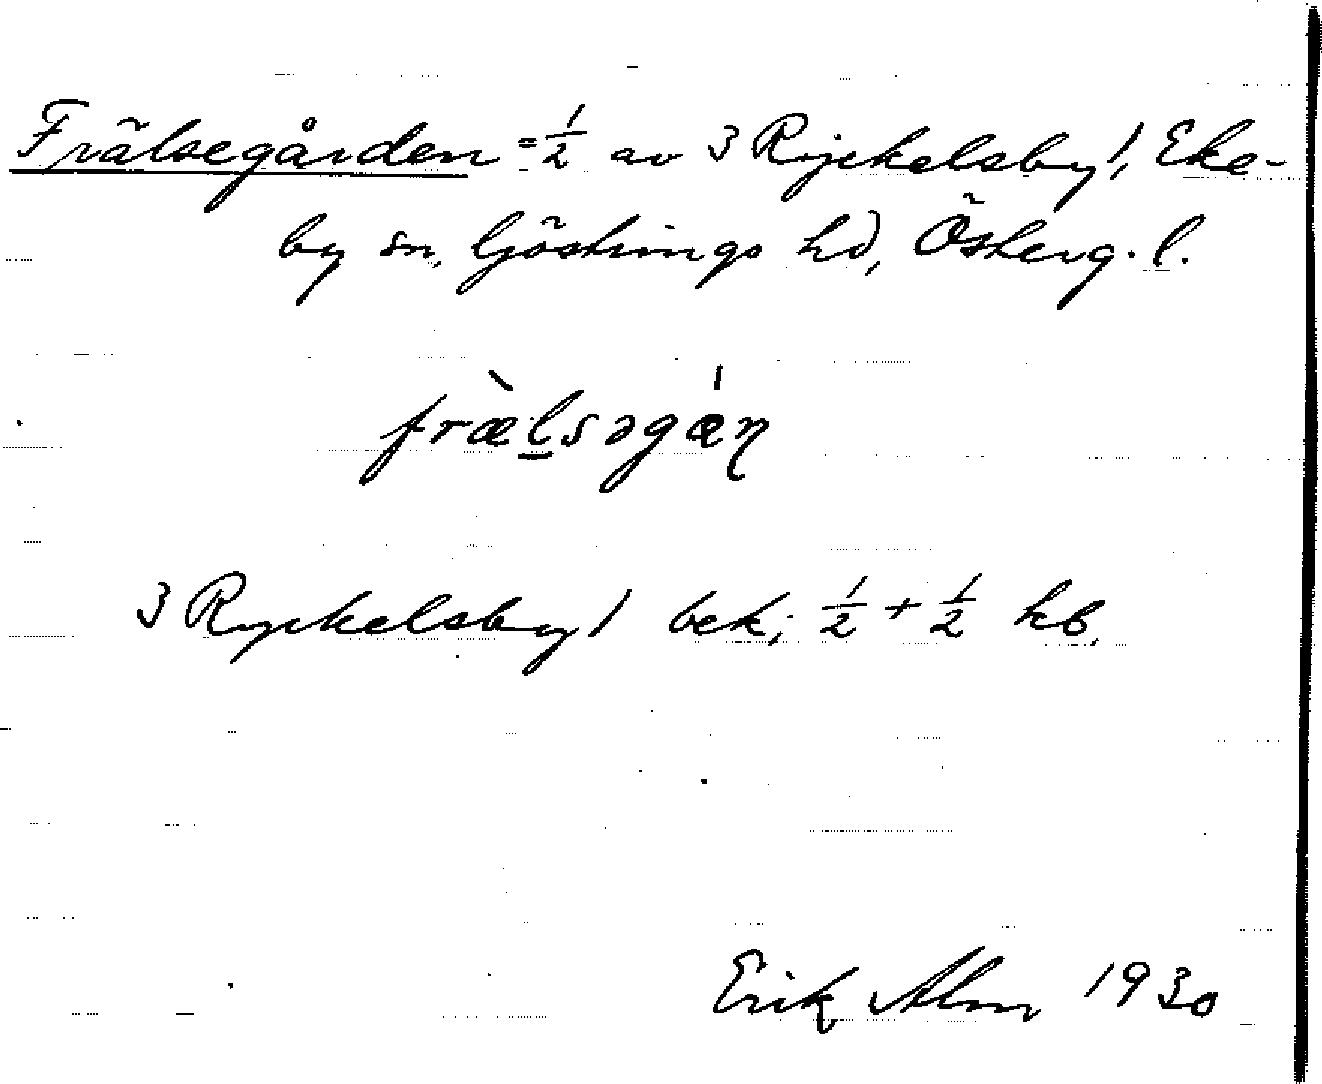 Frälsegården = 1/2 av 3 Ryckelsby 1, Eke-
by sn, Göstrings hd, Österg. l.
fræ̀lsəgɶ́ɳ
3 Ryckelsby 1 bek; 1/2 + 1/2 hb.
Erik Alm 1930